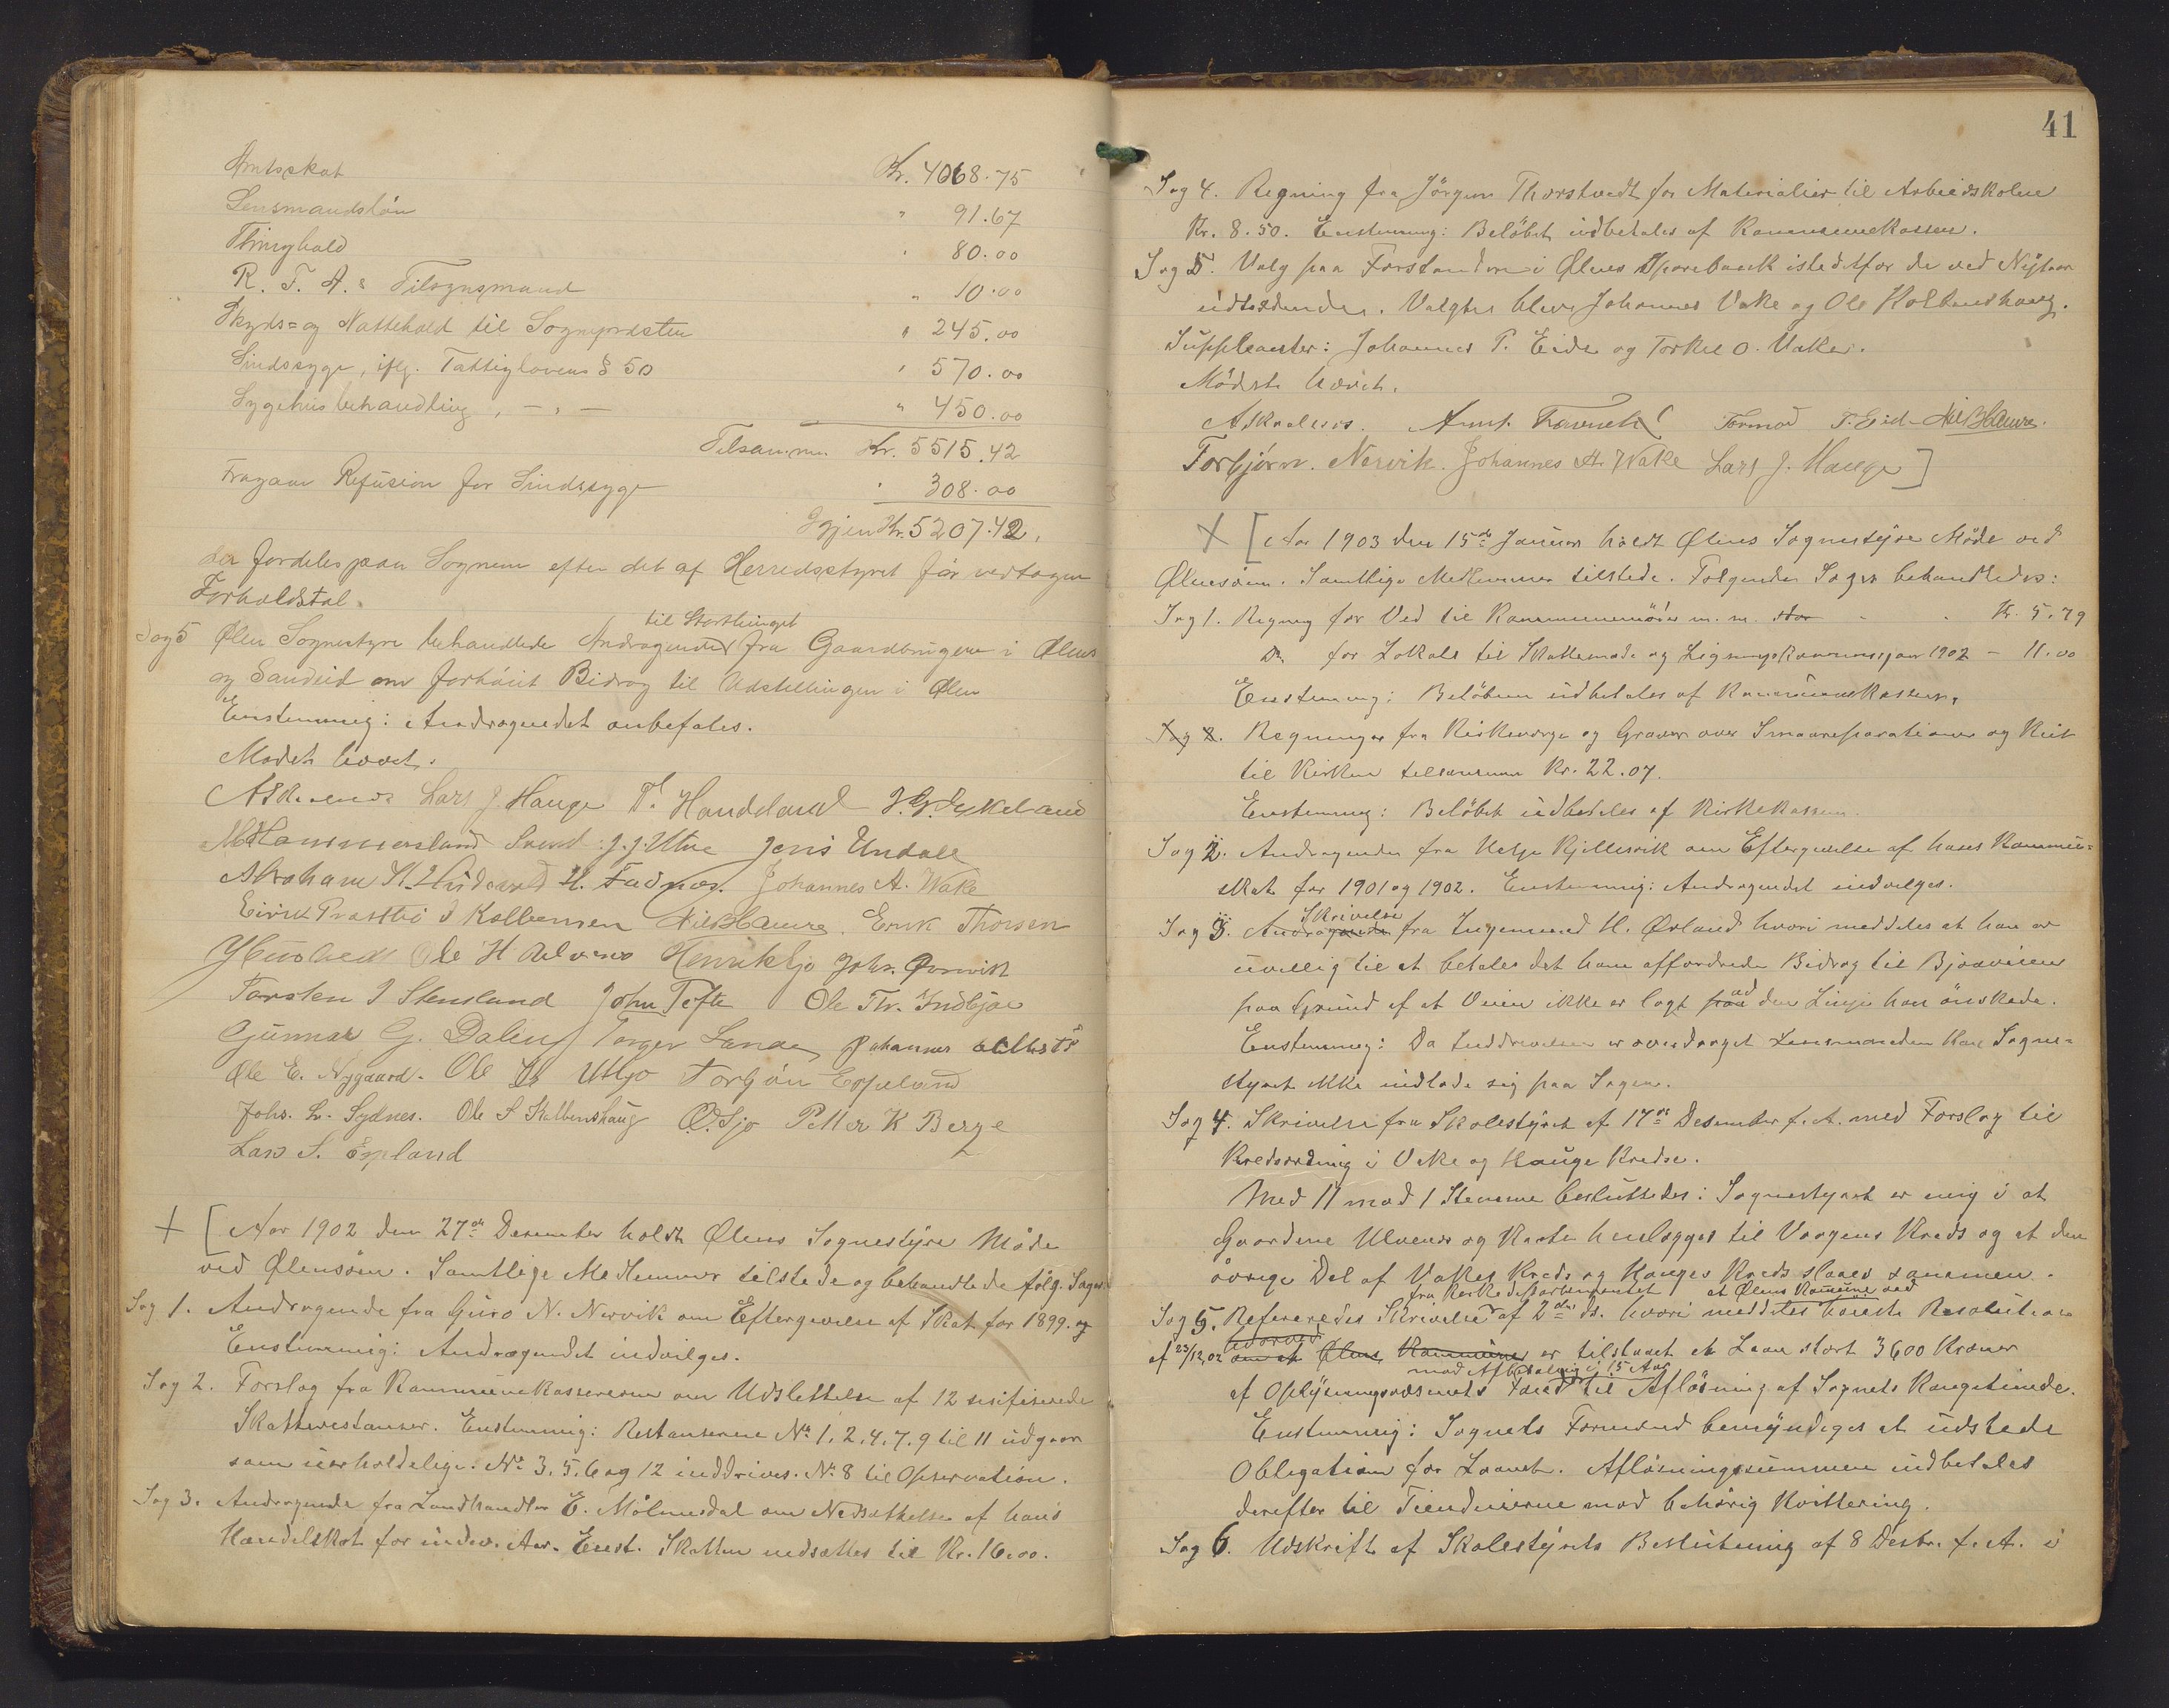 Amtsskat Kr. 4068.75
Lensmandsløn " 91.67
Thinghold " 80.00
R. F. A.s Tilsynsmand " 10.00
Skyds= og Nattehold til Sognepresten " 245.00
Sindssyge, iflg. Fattiglovens § 50 " 570.00
Sygehusbehandling, - " - " 450.00
Tilsammen Kr. 5515.42
Fragaar Refusion for Sindssyge " 308.00
Igjen Kr. 5207.42.
der fordeles paa Sognene efter det af Herredsstyret før vedtagne
Forholdstal.
til Storthinget
Sag 5 Ølen Sognestyre behandlede Andragende fra Gaardbrugere i Ølen
og Sandeid om forhøiet Bidrag til Udstillingen i Ølen
Enstemmig: Andragendet anbefales.
Mødet hævet.
Lars J. Hauge T. Handeland
M. Hammersland J. J. Utne Jens Undall
Abraham H. Fadnes. Johannes A. Wake
Eirik J Kolbensen Nils Haure. Erik Thorsen
Ole H Henrik Ljo Johs. Ørnvik
Torsten J Stensland John Tefte Ole Th. Indbjoe
Gunnar G. Dalen Torger Lande Johannes
Ole E. Nygaard. Ole Utbjo Torbjøn Espeland
Johs. L. Sydnes. Ole S Kolbenshaug O. Sjo Petter K Berge
Lars S. Espland
+ [ Aar 1902 den 27de Desember holdt Ølens Sognestyre Møde
ved Ølensøen. Samtlige Medlemmer tilstede og behandlede følg. Sager
Sag 1. Andragende fra Guro N. Nervik om Eftergivelse af Skat for 1899. og
Enstemmig: Andragendet indvilges.
Sag 2. Forslag fra Kommunekassereren om Udslettelse af 12 Skatterestanser.
Enstemmig: Restanserne No 1, 2, 4, 7, 9 til 11 udgaar
som uerholdelige. No 3, 5, 6 og 12 inddrives. No 8 til Observation.
Sag 3. Andragende fra Landhandler E. Mölmesdal om Nedsættelse af hans
Handelskat for indev. Aar. Enst. Skatten nedsættes til Kr. 16.00.
41
Sag 4. Regning fra Jörgen Thorstvedt for Materialier til Arbeidskolen
Kr. 8.50. Enstemmig: Beløbet udbetales af Kommunekassen.
Sag 5. Valg paa Forstandere i Ølens Sparebank istedetfor de ved Nytaar
udtrædende. Valgte blev Johannes Vake og Ole Kolbenshaug.
Suppleanter: Johannes P. Eide og Torkel O. Vake.
Mødet hævet.
Tormod T. Eid Nils Haure.
Torbjörn. Nervik. Johannes A. Wake Lars J. Hauge ]
+ [ Aar 1903 den 15de Januar holdt Ølens Sognestyre Møde ved
Ølensøen. Samtlige Medlemmer tilstede. Følgende Sager behandledes:
Sag 1. Regning for Ved til Kommunemöder m. m. Kr. 5.79
Do for Lokale til Skattemøde og Ligningskommisjon 1902 - 11.00
Enstemmig: Beløbene udbetales af Kommunekassen.
Sag 2. Regninger fra Kirkeverge og Graver over Smaareparationer og Reit
til Kirken tilsammen Kr. 22.07.
Enstemmig: Beløbet udbetales af Kirkekassen.
Sag 2. Andragende fra Helge Kjellesvik om Eftergivelse af hans Kommune=
skat for 1901 og 1902. Enstemmig: Andragendet indvilges.
Skrivelse
Sag 3. Andragende fra Ingemund H. Østand hvori meddeles at han er
uvillig til at betale det ham affordrede Bidrag til Bjoaveien
paa Grund af at Veien ikke er lagt paa ad den Linje han önskede.
Enstemmig: Da Inddrivelsen er overdraget Lensmanden kan Sogne=
styret ikke indlade sig paa Sagen.
Sag 4. Skrivelse fra Skolestyret af 17de Desember f. A. med Forslag til
Kredsordning i Vake og Hauge Kredse.
Med 11 mod 1 Stemme besluttedes: Sognestyret er enig i at
Gaardene Ulvenes og Karte henlægges til Vaagens Kreds og at den
øvrige Del af Vakes Kreds og Hauges Kreds slaaes sammen.
fra Kirkedepartementet at Ølens Kommune ved
Sag 5. Refereredes Skrivelse af 2den ds. hvori meddeles høieste Resolution
hvorved
af 23/12,02 om at Ølens Kommune er tilstaaet et Laan stort 3600 Kroner
mod Afbetaling i 15 Aar
af Oplysningsvæsenets Fond til Aflösning af Sognets Kongetiende.
Enstemmig: Sognets Formand bemyndiges at udstede
Obligation for Laanet. Aflösningssummen udbetales
derefter til Tiendeeierne mod behörig Kvittering.
Sag 6. Udskrift af Skolestyrets Beslutning af 8 Desbr. f. A. i